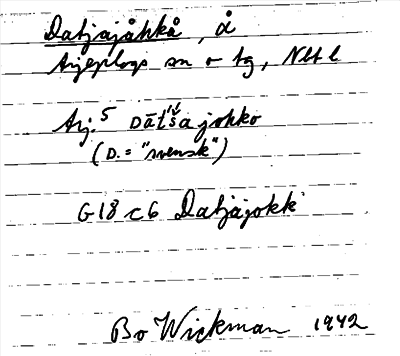 Datjajåhkå, å
Arjeplogs sn o tg, Nbt l
Arj.5 Dāt́šajohko
(D. = "svensk")
G18 c6 Datjajokk
Bo Wickman 1942